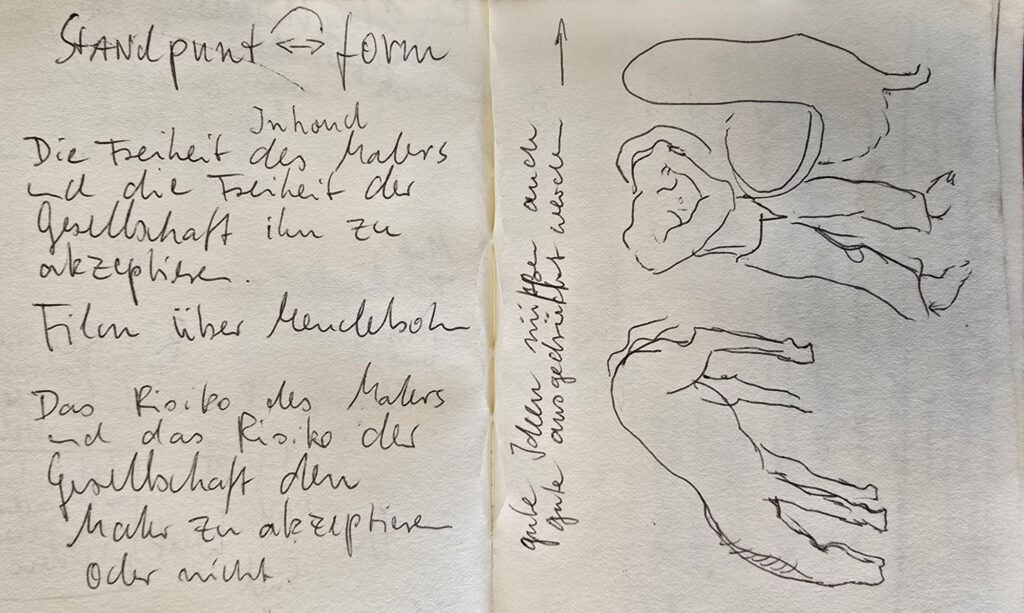 STANDpunt ↔ form
Inhoud
Die Freiheit des Malers
und die Freiheit der
Gesellschaft ihn zu
akzeptieren.
Film über Mendelsohn
Das Risiko des Malers
und das Risiko der
Gesellschaft den
Maler zu akzeptieren
oder nicht.
gute Ideen müßen auch
gute ausgedrückt werden